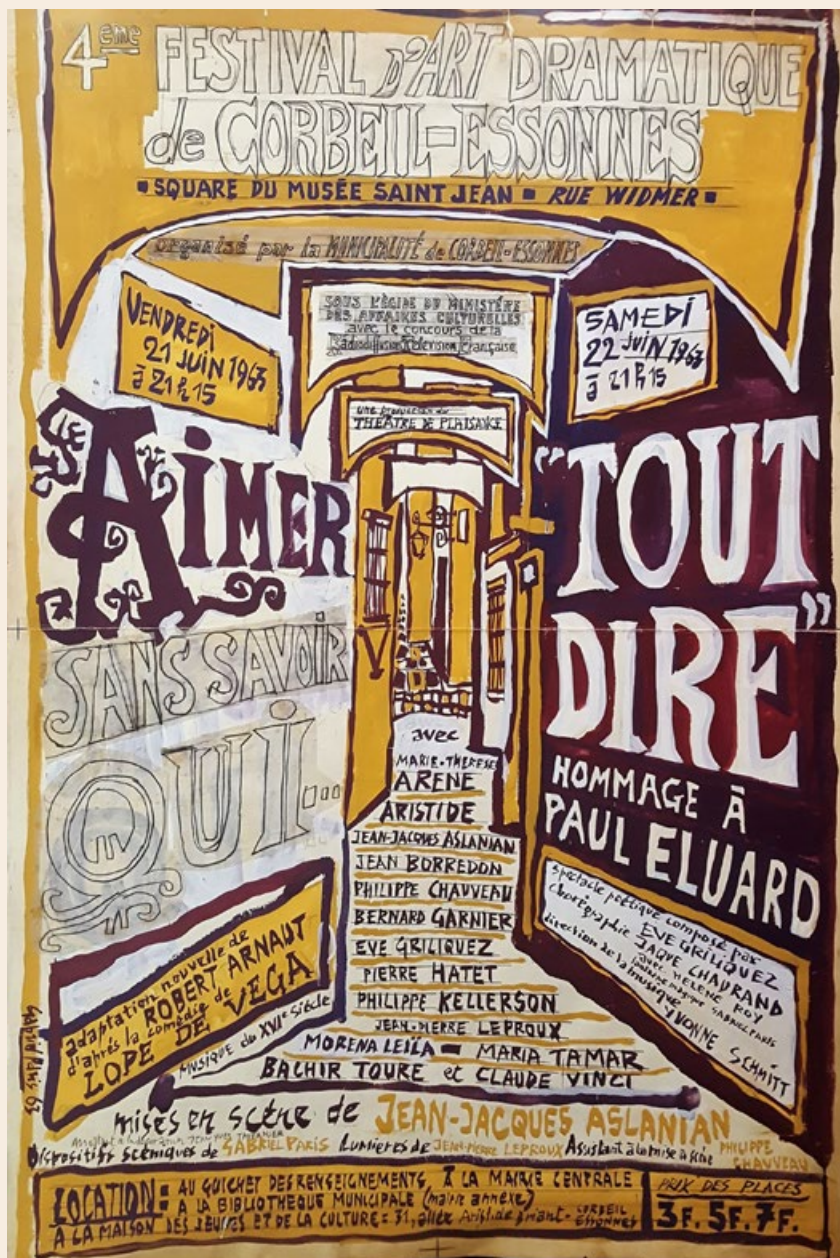 4eme FESTIVAL D'ART DRAMATIQUE
de CORBEIL-ESSONNES
SQUARE DU MUSÉE SAINT JEAN RUE WIDMER
organisé par la MUNICIPALITÉ de CORBEIL-ESSONNES
VENDREDI
21 JUIN 1963
à 21h15
SOUS L'ÉGIDE DU MINISTÈRE
DES AFFAIRES CULTURELLES
avec le concours de la
Radiodiffusion Télévision Française
SAMEDI
22 JUIN 1963
à 21h15
une production du
THÉATRE DE PLAISANCE
AIMER
SANS SAVOIR
QUI...
adaptation nouvelle de
ROBERT ARNAUT
d'après la comédie de
LOPE DE VEGA
MUSIQUE du XVIe siècle
"TOUT
DIRE"
HOMMAGE À
PAUL ELUARD
spectacle poétique composé par
ÈVE GRILIQUEZ
chorégraphie JAQUE CHAURAND
avec HELENE ROY
GABRIEL PARIS
direction de la musique
YVONNE SCHMITT
avec
MARIE-THERESE
ARENE
ARISTIDE
JEAN-JACQUES ASLANIAN
JEAN BORREDON
PHILIPPE CHAUVEAU
BERNARD GARNIER
EVE GRILIQUEZ
PIERRE HATET
PHILIPPE KELLERSON
JEAN-PIERRE LEPROUX
MORENA LEÏLA MARIA TAMAR
BACHIR TOURE et CLAUDE VINCI
mises en scène de JEAN-JACQUES ASLANIAN
Dispositifs scéniques de GABRIEL PARIS Lumières de JEAN-PIERRE LEPROUX Assistant à la mise en scène PHILIPPE
CHAUVEAU
LOCATION: AU GUICHET DES RENSEIGNEMENTS, À LA MAIRIE CENTRALE
À LA BIBLIOTHEQUE MUNICIPALE (mairie annexe)
A LA MAISON DES JEUNES ET DE LA CULTURE: 31, allée Aristide Briant - CORBEIL
ESSONNES
PRIX DES PLACES
3F. 5F. 7F.
Gabriel Paris 63